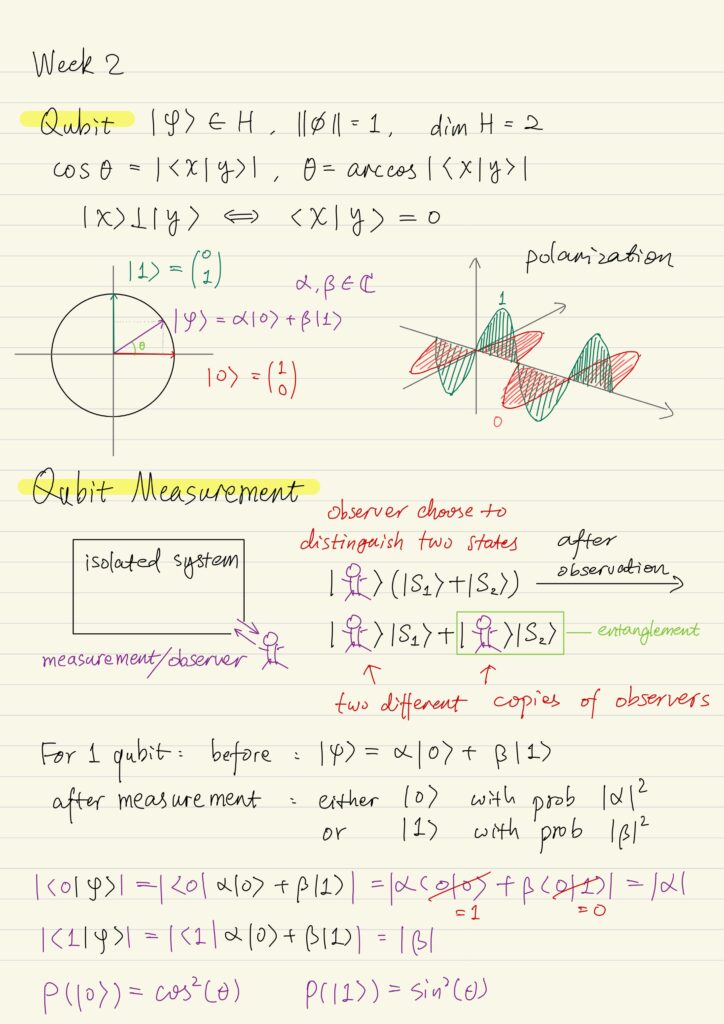 Week 2
Qubit |φ⟩ ∈ H, ‖ϕ‖ = 1, dim H = 2
cos θ = |⟨x|y⟩|, θ = arccos |⟨x|y⟩|
|x⟩⊥|y⟩ ⟺ ⟨x|y⟩ = 0
polarization
|1⟩ = (0 1)
α, β ∈ ℂ
|φ⟩ = α|0⟩ + β|1⟩
θ
|0⟩ = (1 0)
1
0
Qubit Measurement
isolated system
measurement/observer
observer choose to
distinguish two states
| ⟩(|S₁⟩+|S₂⟩)
after
observation
| ⟩|S₁⟩+| ⟩|S₂⟩
entanglement
two different copies of observers
For 1 qubit: before: |φ⟩ = α|0⟩ + β|1⟩
after measurement: either |0⟩ with prob |α|²
or |1⟩ with prob |β|²
|⟨0|φ⟩| = |⟨0|α|0⟩ + β|1⟩| = |α⟨0|0⟩ + β⟨0|1⟩| = |α|
=1 =0
|⟨1|φ⟩| = |⟨1|α|0⟩ + β|1⟩| = |β|
P(|0⟩) = cos²(θ) P(|1⟩) = sin²(θ)